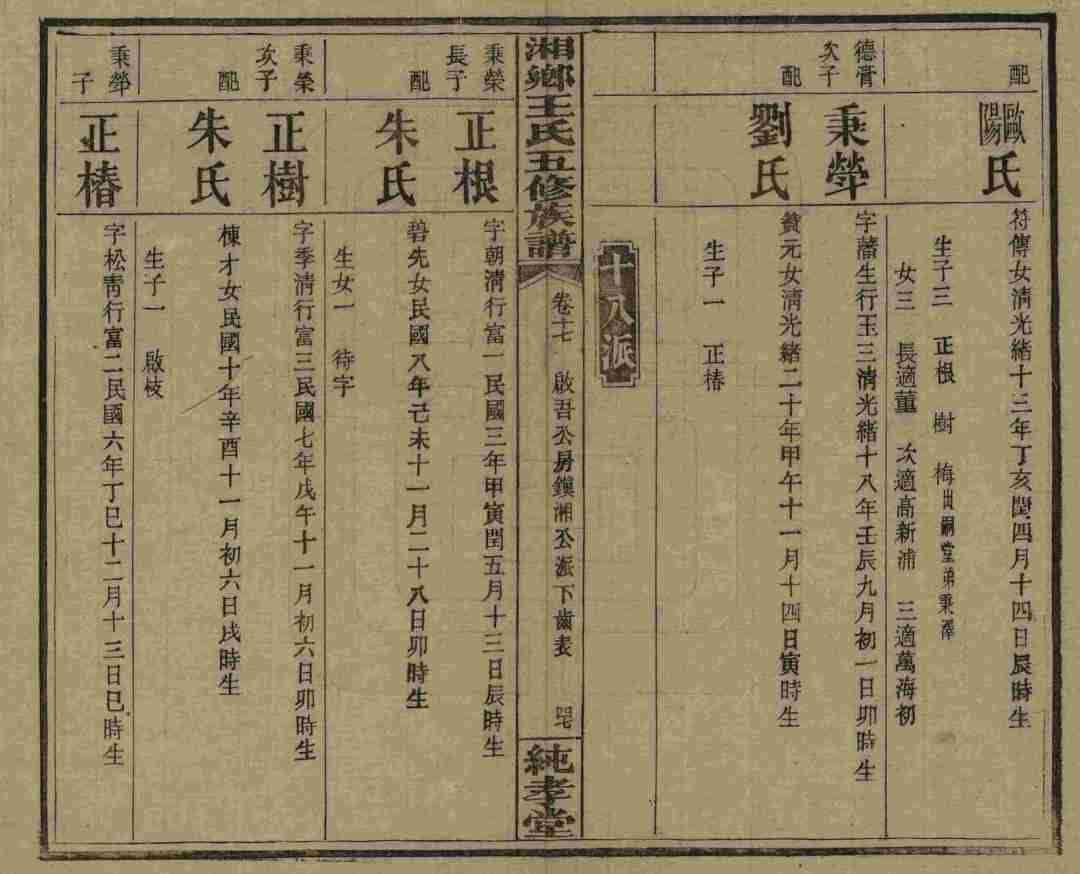 配
歐陽氏
符傳女清光緒十三年丁亥閏四月十四日辰時生
生子三 正根 樹 梅出嗣堂弟秉澤
女三 長適董 次適高新浦 三適萬海初
德膏次子
秉犖
字蕃生行玉三清光緒十八年壬辰九月初一日卯時生
配
劉氏
贊元女清光緒二十年甲午十一月十四日寅時生
生子一 正椿
十八派
湘鄉王氏五修族譜
卷十七 啟吾公房鎮湘公派下齒表
純孝堂
秉榮長子
正根
字朝清行富一民國三年甲寅閏五月十三日辰時生
配
朱氏
碧先女民國八年己未十一月二十八日卯時生
生女一 待字
秉榮次子
正樹
字季清行富三民國七年戊午十一月初六日卯時生
配
朱氏
棟才女民國十年辛酉十一月初六日戌時生
生子一 啟枝
秉犖子
正椿
字松青行富二民國六年丁巳十二月十三日巳時生